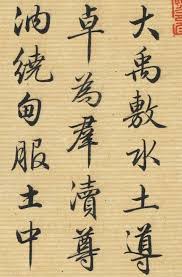 大禹敷水土導
卓為羣瀆尊
汭繞甸服土中